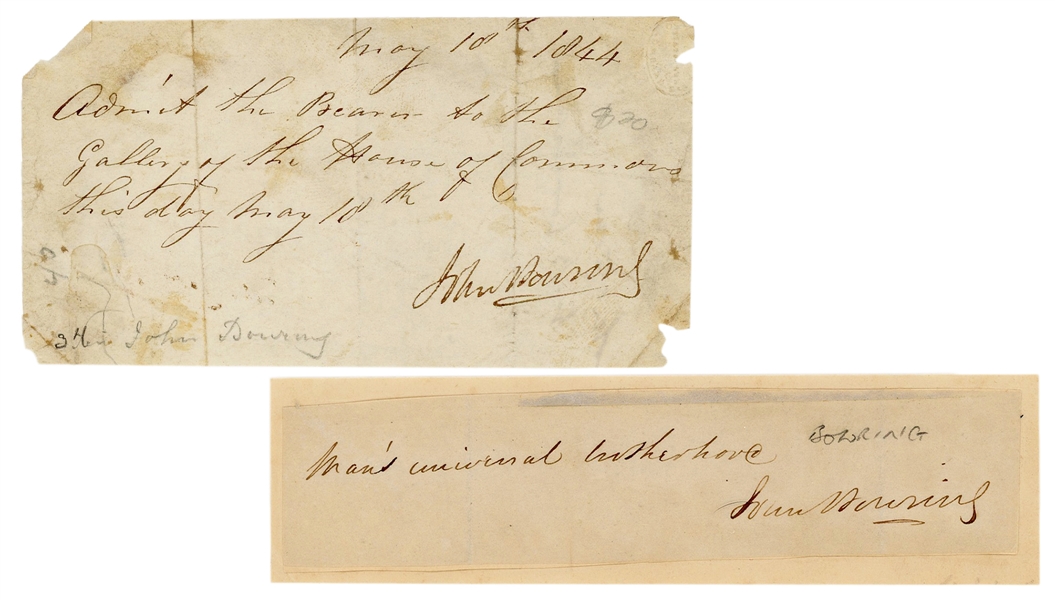 May 18th 1844
Admit the Bearer to the
$20
Gallery of the House of Commons
this day May 18th
John Bowring
John Bowring
Man's universal brotherhood
BOWRING
John Bowring